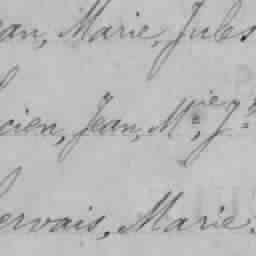 ean, Marie, Jules
cien, Jean, M.ie, J.
Gervais, Marie.